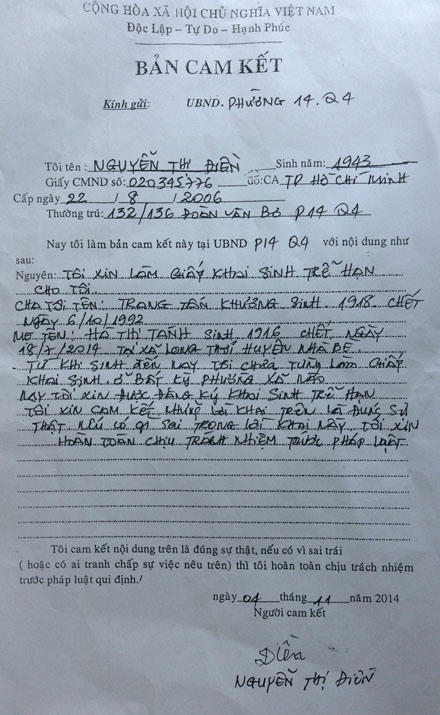 CỘNG HÒA XÃ HỘI CHỦ NGHĨA VIỆT NAM
Độc Lập – Tự Do – Hạnh Phúc
BẢN CAM KẾT
Kính gửi: UBND. PHƯỜNG 14. Q4
Tôi tên : NGUYỄN THỊ ĐIỀN Sinh năm: 1943
Giấy CMND số: 020345776 do:CA TP HỒ CHÍ MINH
Cấp ngày 22 / 8 / 2006
Thường trú: 132/136 ĐOÀN VĂN BƠ P14 Q4
Nay tôi làm bản cam kết này tại UBND P14 Q4 với nội dung như
sau:
Nguyên: TÔI XIN LÀM GIẤY KHAI SINH TRỄ HẠN
CHO TÔI
CHA TÔI TÊN: TRANG TẤN KHƯƠNG SINH 1918 CHẾT
NGÀY 6/10/1992
MẸ TÊN: HÀ THỊ TẠNH SINH 1916 CHẾT NGÀY
18/7/2014 TẠI XÃ LONG THỚI HUYỆN NHÀ BÈ
TỪ KHI SINH ĐẾN NAY TÔI CHƯA TỪNG LÀM GIẤY
KHAI SINH Ở BẤT KỲ PHƯỜNG XÃ NÀO
NAY TÔI XIN ĐƯỢC ĐĂNG KÝ KHAI SINH TRỄ HẠN
TÔI XIN CAM KẾT NHỮNG LỜI KHAI TRÊN LÀ ĐÚNG SỰ
THẬT NẾU CÓ GÌ SAI TRONG LỜI KHAI NÀY TÔI XIN
HOÀN TOÀN CHỊU TRÁCH NHIỆM TRƯỚC PHÁP LUẬT
Tôi cam kết nội dung trên là đúng sự thật, nếu có vì sai trái
( hoặc có ai tranh chấp sự việc nêu trên) thì tôi hoàn toàn chịu trách nhiệm
trước pháp luật qui định./
ngày 04 tháng 11 năm 2014
Người cam kết
Điền
NGUYỄN THỊ ĐIỀN